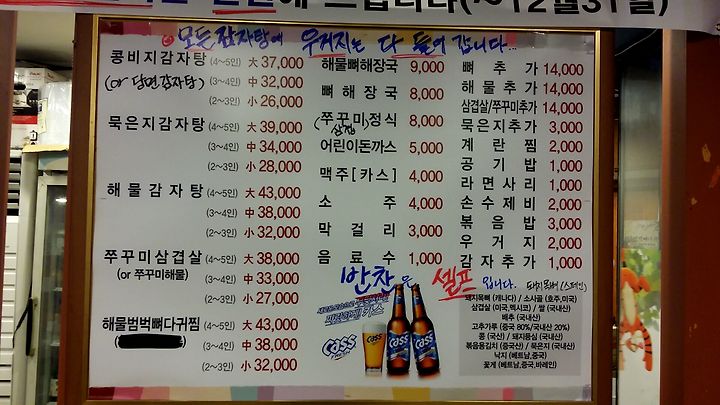 에 드립니다(~12월31일)
모든 감자탕에 우거지는 다 들어 갑니다...
콩비지감자탕 (4~5인) 大 37,000
(or 당면감자탕) (3~4인) 中 32,000
(2~3인) 小 26,000
묵은지감자탕 (4~5인) 大 39,000
(3~4인) 中 34,000
(2~3인) 小 28,000
해물감자탕 (4~5인) 大 43,000
(3~4인) 中 38,000
(2~3인) 小 32,000
쭈꾸미삼겹살 (4~5인) 大 38,000
(or 쭈꾸미해물) (3~4인) 中 33,000
(2~3인) 小 27,000
해물범벅뼈다귀찜 (4~5인) 大 43,000
(3~4인) 中 38,000
(2~3인) 小 32,000
해물뼈해장국 9,000
뼈해장국 8,000
(쭈꾸미)정식 8,000
어린이돈까스 5,000
맥주[카스] 4,000
소주 4,000
막걸리 3,000
음료수 1,000
뼈추가 14,000
해물추가 14,000
삼겹살/쭈꾸미추가 14,000
묵은지추가 3,000
계란찜 2,000
공기밥 1,000
라면사리 1,000
손수제비 2,000
볶음밥 3,000
우거지 2,000
감자추가 1,000
반찬은 셀프 입니다.
카스
Cass
Cass
Cass
Cass
돼지목뼈 (캐나다) / 소사골 (호주,미국)
삼겹살 (미국,멕시코) / 쌀 (국내산)
배추 (국내산)
고추가루 (중국 80%/국내산 20%)
콩 (국산) / 돼지등심 (국내산)
볶음용김치 (중국산) / 묵은지 (국내산)
낙지 (베트남,중국)
꽃게 (베트남,중국,바레인)